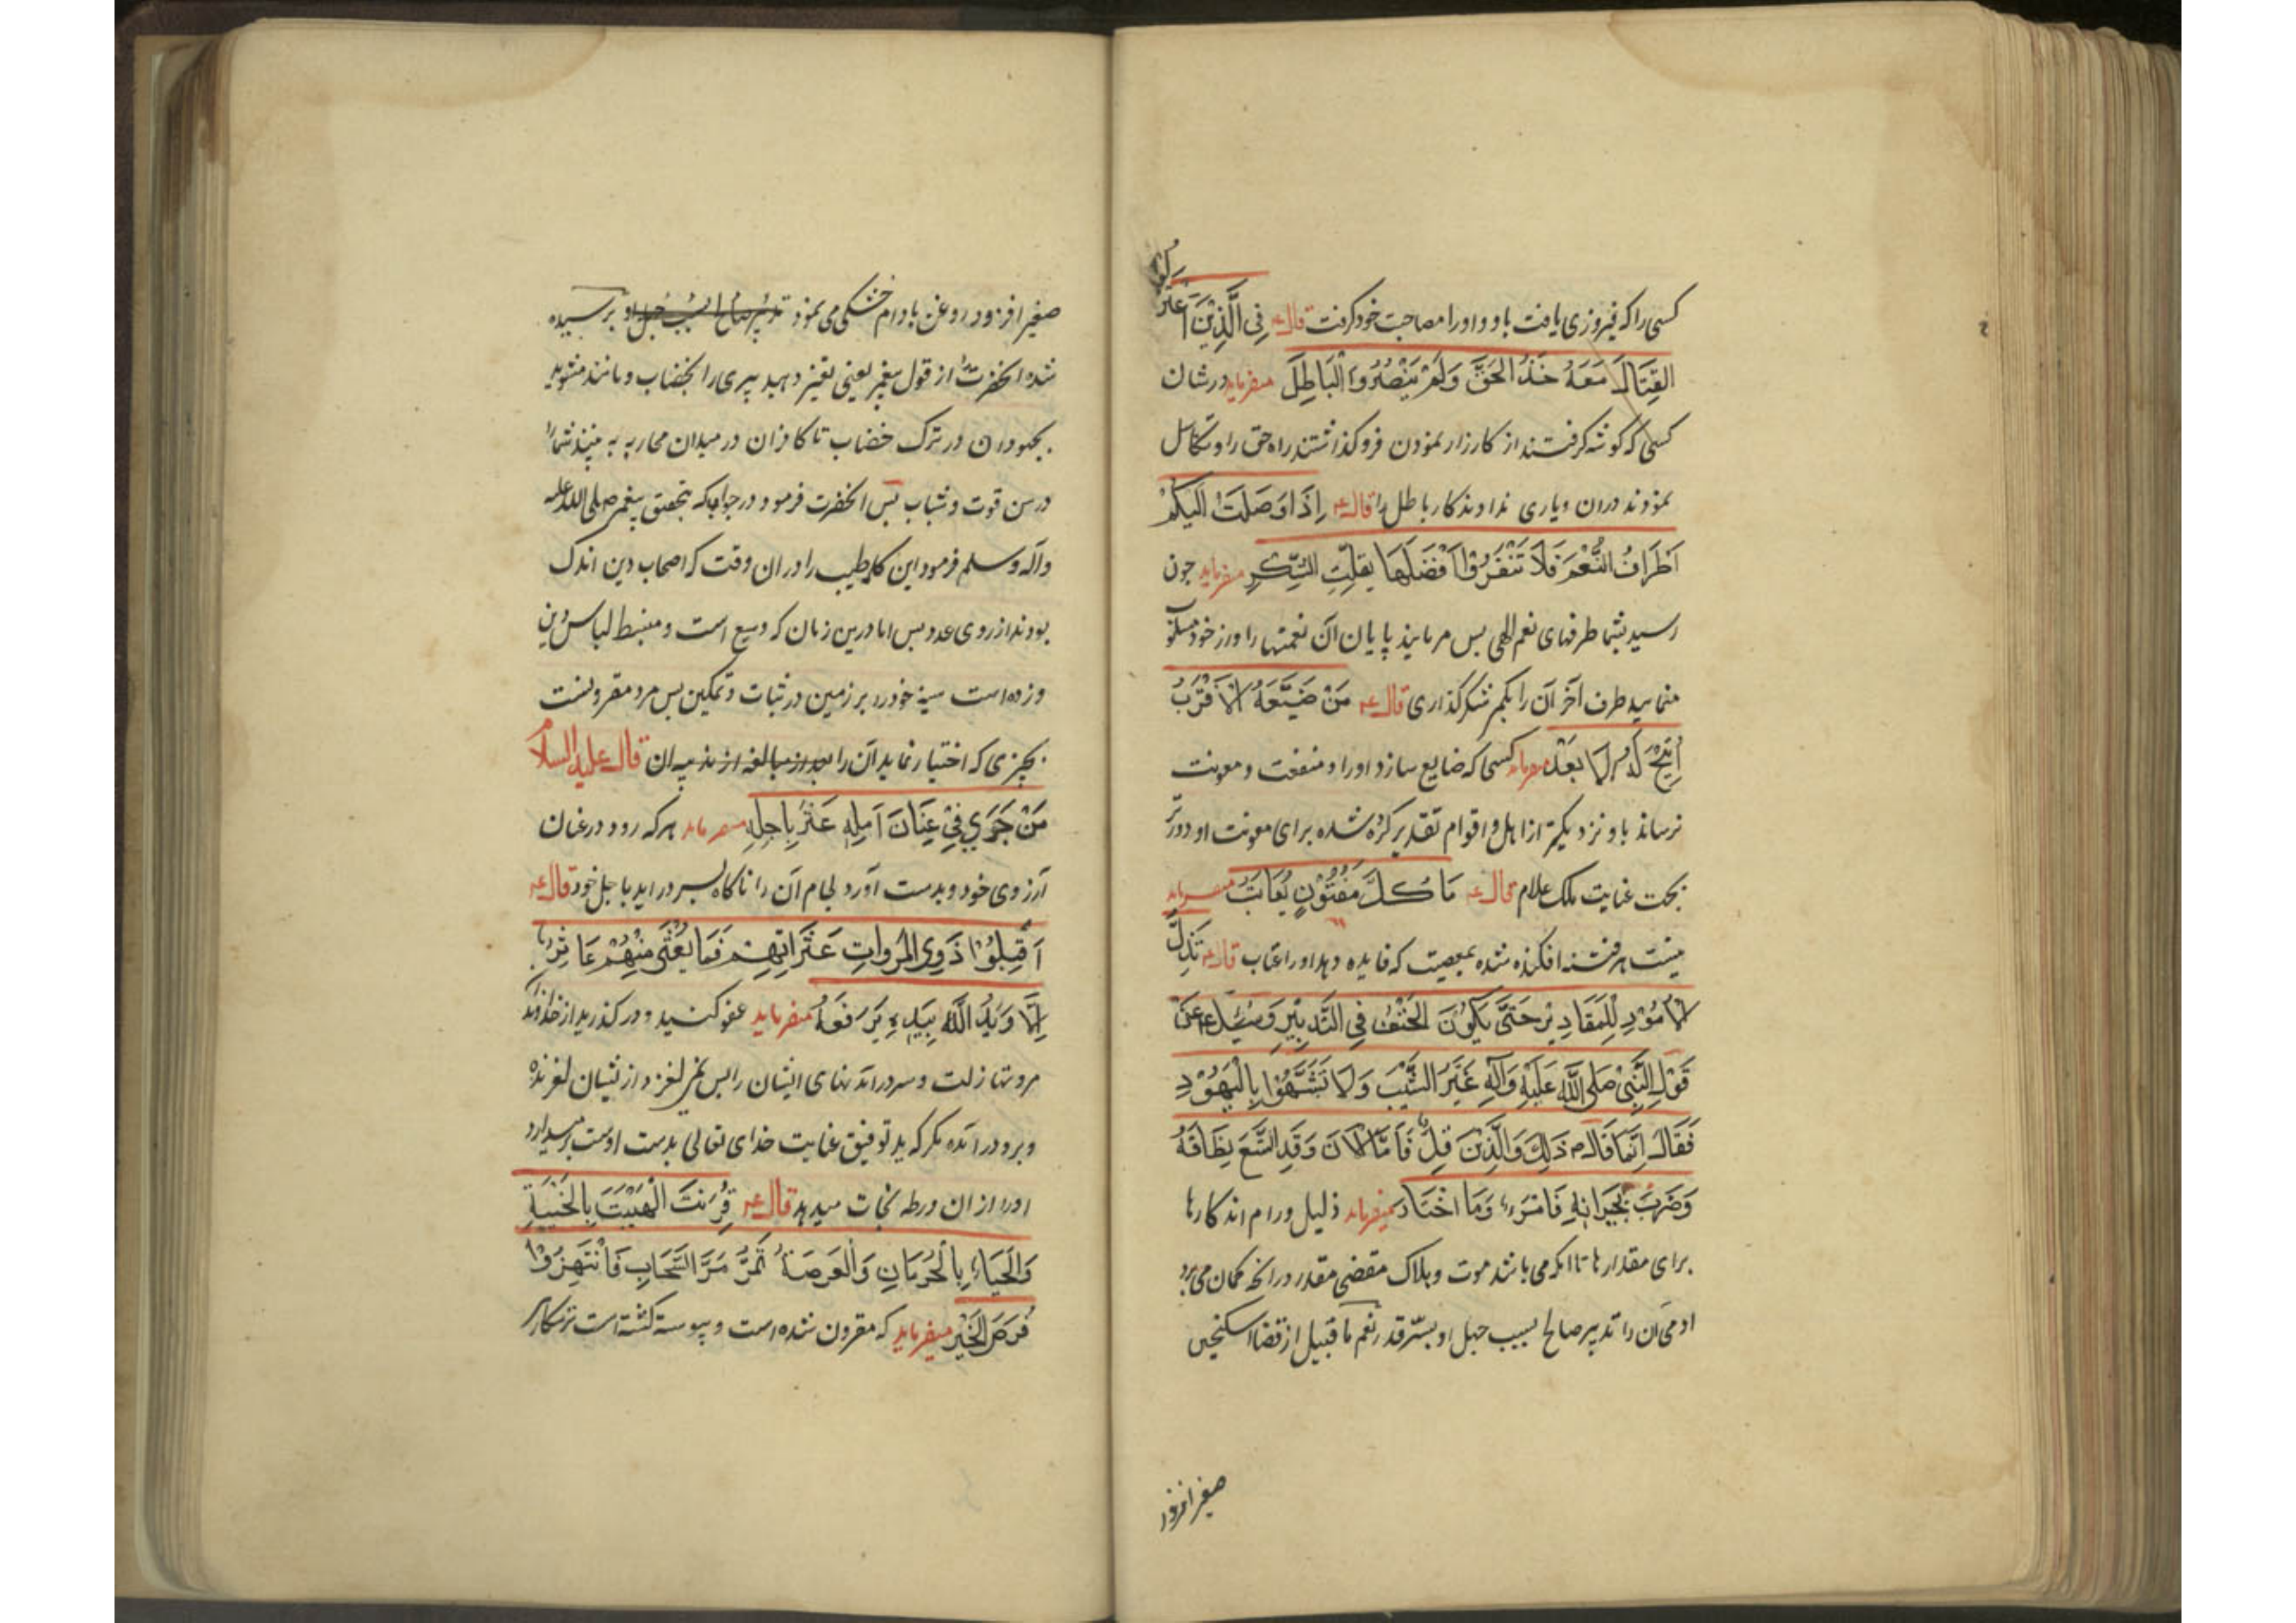 کسی را که فیروزی یافت باو و اورا مصاحب خود کرفت قال ع فِي الَّذِيْنَ اعتزلوا
القِتَالَ مَعَهُ خَذَلُ الحَقَّ وَلَمْ يَنْصُرُوا الْبَاطِلَ میفرماید در شان
کسی که کوشه کرفتند از کارزار نمودن فروکذاشتند راه حق را و تکاسل
نمودند دران و یاری ندادند کار باطل را قال ع اِذَا وَصَلَتْ اِلَيكُمْ
اَطْرَافُ النُّعْمَ فَلَا تَنْفَرُوْا اَقْضَلَهَا بِقلّتِ الشّكرِ میفرماید جون
رسید بشما طرفهای نعم الهی بس مرمانید پایان آن نعمتها را و از خود مسلوب
منمایید طرف آخر آن را بکم شکر کذاری قال ع مَنْ ضَيَّعَهُ الاَقْرَبُ
اُتِيْحَ لَهُ الاَ بعَدُ میفرماید کسی که ضایع سازد اورا و منفعت و معونت
نرساند باو نزدیکتر از اهل و اقوام تقدیر کرده شده برای معونت او دورتر
بجهت عنایت ملک علام قال ع مَا كُلَّ مَفْتُوْنٍ يُعَاتَبُ میفرماید
نیست هر فتنه افکنده شده بمعصیت که فایده دهد اورا عتاب قال ع تَذِلُّ
الاُمُوْرِ لِلْمَقَادِيْرِ حَتَّى يَكُوْنَ الْحَتْفُ فِي التَّدْبِيْرِ وَسُئِلَ ع عَنْ
قَوْلِ النَّبِيْ صَلَى اللَّهُ عَلَيْهِ وَآلِهِ غَيِّرُ الشَّيْبَ وَلَا تَشَبَّهُوْا بِالْيَهُوْدِ
فَقَالَ اِنَّمَا قَالَ م ذَلِكَ وَالَّذِيْنَ قِلٌّ فَاَمَّا الْاٰنَ وَقَدِ اتَّسَعَ نِطَاقَهُ
وَضَرَبَ بِجِرَانِهِ فَامْرَءٍ وَمَا اخْتَارَ میفرماید ذلیل و رام اند کارها
برای مقدارها تا انکه می باشد موت و هلاک مقتضی مقدر در انچه کمان می برد
ادمی آن را تدبیر صالح بسبب جهل او بسّر قدر نعم ما قیل از قضا اسکنجین
صفرا فزود
صفرا فزود روغن بادام خشکی می نمود تدبیر صالح بسبب جهل او برسیده
شده انحضرت از قول پیغمبر یعنی تغییر دهید پیری را بخضاب و مانند مشوید
بجهودان در ترک خضاب تا کافران در میدان محاربه به بینند شما را
در سن قوت و شباب بس انحضرت فرمود در جواب که بتحقیق پیغمبر صلی الله علیه
وآله وسلم فرمود این کلمه طیب را دران وقت که اصحاب دین اندک
بودند از روی عدد بس اما درین زمان که وسیع است و منبسط لباس دین
و زده است سینه خود را بر زمین در ثبات و تمکین بس مرد مقرونست
بچیزی که اختیار نماید آن را بعد از مبالغه از ندب ان قال علیه السلام
مَنْ جَرَي فِيْ عِنَانَ اَمَلِهِ عَثَرَ بِاَجَلِهِ میفرماید هرکه رود درعنان
آرزوی خود و بدست آورد لجام آن را ناکاه بسر دراید با جل خود قال ع
اَقِيلُوْا ذَوِى الْمُرواتِ عَثَرَاتِهِمْ فَمَا يَعْثَى مِنْهُمْ عَاثِرٌ
اِلَّا وَيَدُ اللَّهُ بِيَدِهِ يَرْفَعَهُ میفرماید عفو کنید و درکذرید از خداوند
مروتها زلت و سردرامدنهای ایشان را بس نمی لغزد از ایشان لغزنده
وبرودرامده مکر که ید توفیق عنایت خدای تعالی بدست اوست برمیدارد
اورا از ان ورطه نجات میدهد قال ع قُرِنَتَ الْهَيْبَتَ بِالْخَيْبَةِ
وَالْحَيَاءِ بِالْحُرْمَانِ وَالْفَرصَةُ تَمُرُّ مَرَّ السَّحَابِ فَانْتَهِزُوْا
فُرَصَ الخَيْرِ میفرماید که مقرون شده است و پیوسته کشته است ترسکاری